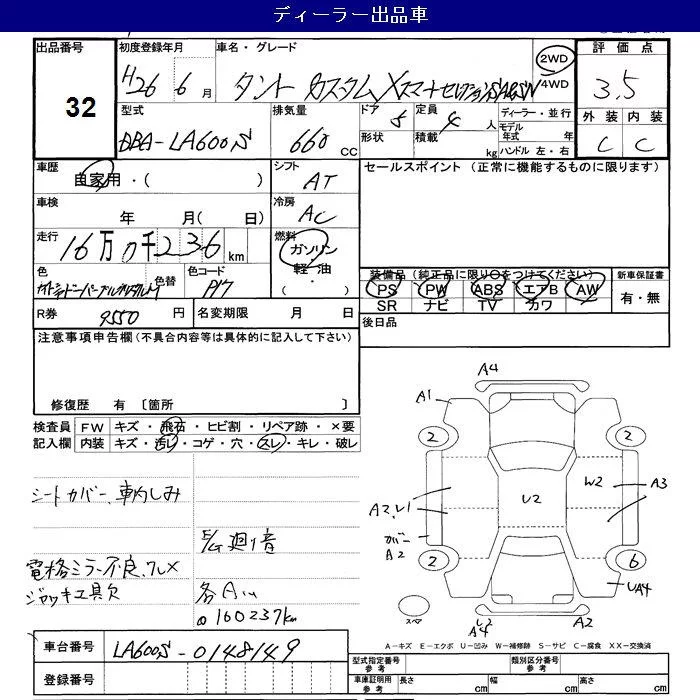 ディーラー出品車
出品番号 32
初度登録年月 H26 6月
車名・グレード タント カスタムXスマートセレクションSA&SN
2WD 4WD
評価点 3.5
外装 C 内装 C
型式 DBA-LA600S
排気量 660 CC
ドア 5
形状
定員 4 人
積載 kg
ディーラー・並行
モデル年式 年
ハンドル 左・右
車歴 自家用・( )
シフト AT
セールスポイント (正常に機能するものに限ります)
車検 年 月( 日)
冷房 AC
走行 16万0千236km
燃料 ガソリン 軽油・( )
色
色替
色コード P17
R券 9550円
名変期限 月 日
装備品(純正品に限り○をつけてください)
PS PW ABS エアB AW
SR ナビ TV カワ
新車保証書 有・無
後日品
注意事項申告欄(不具合内容等は具体的に記入して下さい)
修復歴 有〔箇所 〕
検査員記入欄
FW キズ・飛石・ヒビ割・リペア跡・×要
内装 キズ・汚レ・コゲ・穴・スレ・キレ・破レ
シートカバー、車内しみ
E/G廻り音
電格ミラー不良、フレメ
ジャッキ工具欠
各Aいい
@160237km
A4
A1
2 2
U2 W2 A3
A2,U1
カバー
A2
2 6
UA4
スペア
U2
A4
A2
A-キズ E-エクボ U-凹み W-補修跡 S-サビ C-腐食 XX-交換済
車台番号 LA600S-0148149
登録番号
型式指定番号 参考
類別区分番号 参考
車庫証明用 参考 長さ cm 幅 cm 高さ cm